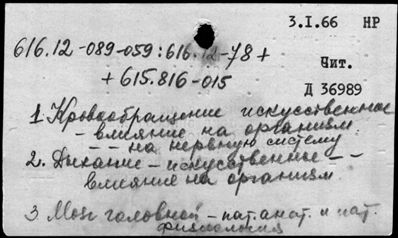 3.I.66 НР
616.12-089-059:616.12-78+
Чит.
+615.816-015
Д 36989
1 Кровообращение искусственное
- влияние на организм.
- - на нервную систему
2. Дыхание - искусственное - -
влияние на организм
3 Мозг головной - пат. анат. и пат.
физиология